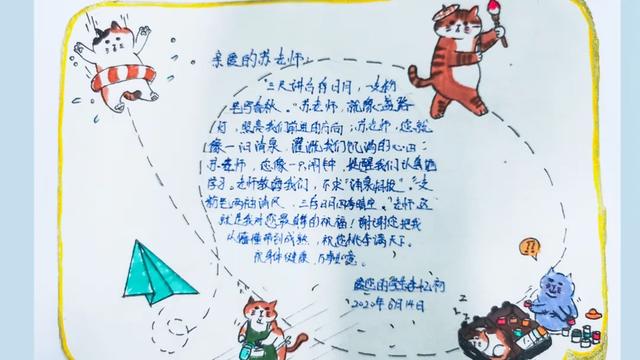 亲爱的苏老师
"三尺讲台存日月,一支粉
笔写春秋。"苏老师,就像一盏路
灯,照亮我们前进的方向;苏老师,您就
像一汩清泉,灌溉我们饥渴的心田;
苏老师,您像一只闹钟,提醒我们认真
学习。老师教诲我们,不求"涌泉相报"。"支
前 两袖清风,三 日月
就是我对您最真挚的祝福!谢谢您把我
从懵懂带到成熟,祝您桃李满天下。
祝身体健康,万事如意。
爱您的学生李
2020年6月14日
!!